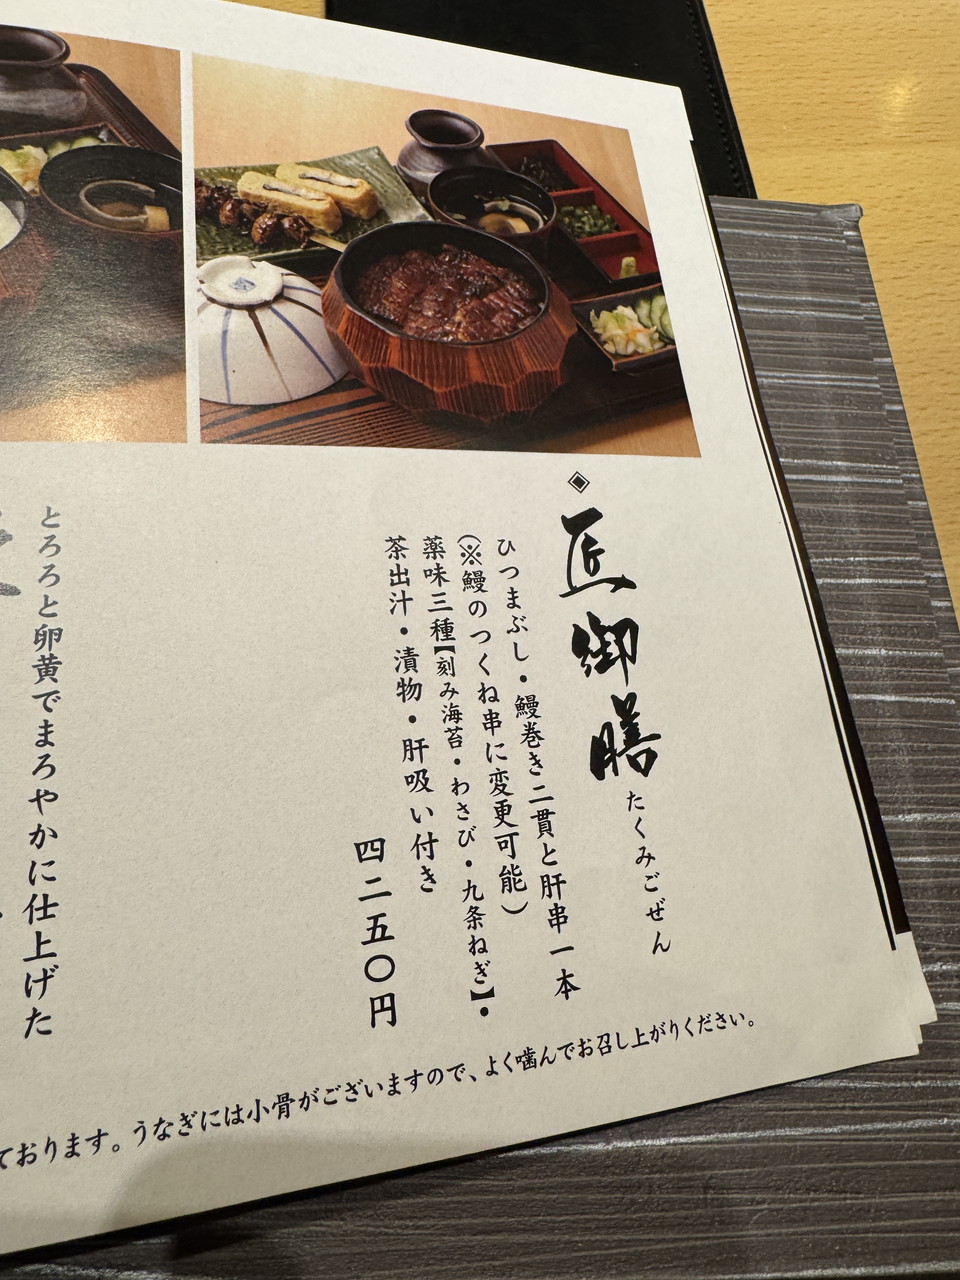 ◈匠御膳 たくみごぜん
ひつまぶし・鰻巻き二貫と肝串一本
(※鰻のつくね串に変更可能)
薬味三種【刻み海苔・わさび・九条ねぎ】・
茶出汁・漬物・肝吸い付き
四二五〇円
とろろと卵黄でまろやかに仕上げた
ております。うなぎには小骨がございますので、よく噛んでお召し上がりください。